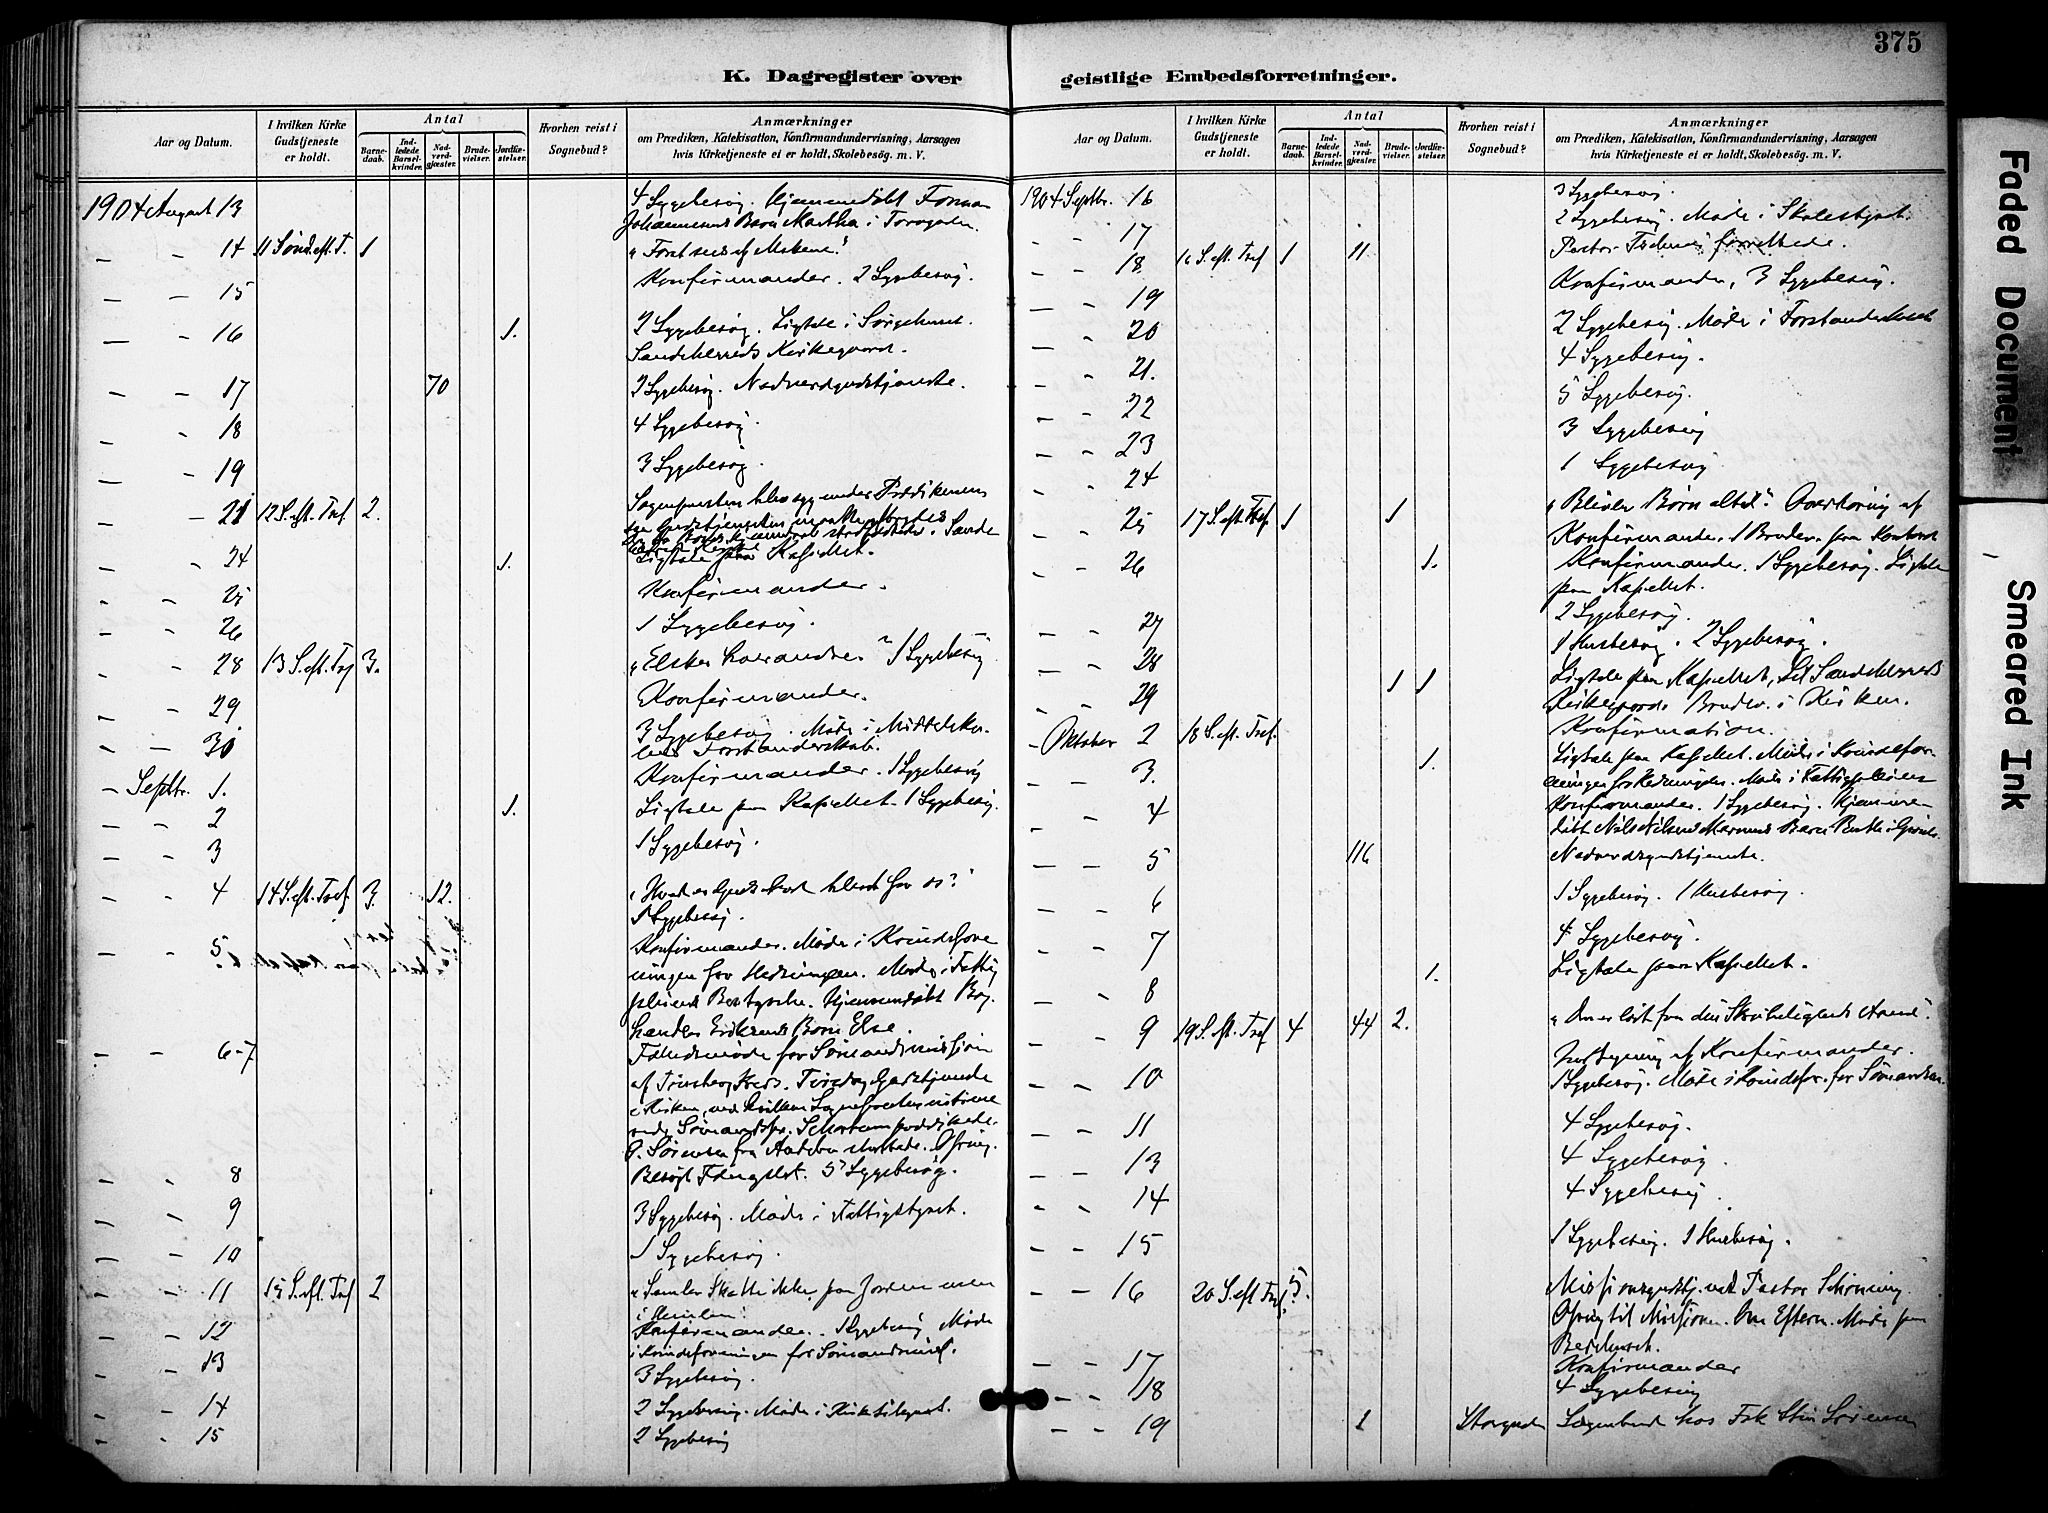 375
K. Dagregister over
geistlige Embedsforretninger.
Aar og Datum.
I hvilken Kirke Gudstjeneste er holdt.
Antal
Barnedaab.
Indledede Barselkvinder.
Nadverdgjæster.
Brudevielser.
Jordfæstelser.
Hvorhen reist i Sognebud?
Anmærkninger
om Prædiken, Katekisation, Konfirmandundervisning, Aarsagen
hvis Kirketjeneste ei er holdt, Skolebesög. m. V.
1904 August 13 4 Sygebesøg. Hjemmedøbt
Johannesens Barn Martha i
14 11 Sønd. eft. T. 1
15 Konfirmander. 2 Sygebesøg.
16 1. 2 Sygebesøg. Ligtale i Sørgehuset.
Sandeherreds Kirkegaard.
17 70 2 Sygebesøg. Nadverdgudstjeneste.
18 4 Sygebesøg.
19 3 Sygebesøg.
21 12 S. eft. Tref. 2. Sognepresten blev syg under Prædikenen
24 1. Ligtale paa Kapellet.
25 Konfirmander.
26 1 Sygebesøg.
28 13 S. eft. Tref 3. "Elsker hverandre." 1 Sygebesøg
29 Konfirmander.
30 3 Sygebesøg. Møde i Middelsko-
lens Forstanderskab.
Septbr. 1. Konfirmander. 1 Sygebesøg
2 1. Ligtale paa Kapellet. 1 Sygebesøg.
3 1 Sygebesøg.
4 14 S. eft. Tref. 3. 12.
Sygebesøg.
5 Konfirmander. Møde i Kvindefore
ningen for Hedningem. Møde i Fattig
pleiens Bestyrelse. Hjemmedøbt
Eriksens Barn Else.
6-7 Fællesmøde for Sømandsmissjonen
af Tønsberg Kreds. Tirsdag Gudstjeneste
i Kirken, ved hvilken Sognepresten
8 Besøgt Fængslet. 5 Sygebesøg.
9 3 Sygebesøg. Møde i Fattigstyret.
10 1 Sygebesøg.
11 15 S. eft. Tref 2 "Samler Skatte ikke paa Jorden men
i Himlen."
12 Konfirmander. 1 Sygebesøg Møde
i Kvindeforeningen for Sømandsmis.
13 3 Sygebesøg.
14 2 Sygebesøg. Møde i
15 2 Sygebesøg
Aar og Datum.
I hvilken Kirke Gudstjeneste er holdt.
Antal
Barnedaab.
Indledede Barselkvinder.
Nadverdgjæster.
Brudevielser.
Jordfæstelser.
Hvorhen reist i Sognebud?
Anmærkninger
om Prædiken, Katekisation, Konfirmandundervisning, Aarsagen
hvis Kirketjeneste ei er holdt, Skolebesög. m. V.
1904 Septbr. 16 3 Sygebesøg.
17 2 Sygebesøg. Møde i Skolestyret.
18 16 S. eft. Tref 1 11. Pastor forrettede.
19 Konfirmander, 3 Sygebesøg.
20 2 Sygebesøg. Møde i Forstanderskab
21. 4 Sygebesøg.
22 5 Sygebesøg.
23 3 Sygebesøg
24 1 Sygebesøg
25 17 S. eft. Tref. 1 1 "Bliver Børn altid". Overhøring af
Konfirmander. 1 Brudev. paa Kontoret
26 1. Konfirmander. 1 Sygebesøg. Ligtale
paa Kapellet.
27 2 Sygebesøg.
28 1 Husbesøg. 2 Sygebesøg.
29 1 1 Ligtale paa Kapellet, til Sandeherreds
Kirkegaard. Brudev. i Kirken.
Oktober 2 18 S. eft. Tref. Konfirmation.
3. 1. Ligtale paa Kapellet. Møde i Kvindefor-
eningen for Hedningem. Møde i Fattigpleiens
4 Konfirmander. 1 Sygebesøg. Hjemme-
døbt Nils Nilsens Barn
5 116 Nadverdgudstjeneste.
6 1 Sygebesøg. 1 Husbesøg.
7 4 Sygebesøg.
8 1. Ligtale paa Kapellet.
9 19 S. eft. Tref 4 44 2.
af Konfirmander.
10 1 Sygebesøg. Møde i Kvindefor. for Sømandsm.
11 4 Sygebesøg.
13 4 Sygebesøg.
14 4 Sygebesøg.
15 1 Sygebesøg. 1 Husbesøg.
16 20 S. eft Tref. 5. Missionsgudstj. ved Pastor
Ofring til Missionen. Om Efterm. Møde paa
Bedehuset.
17 Konfirmander
18 4 Sygebesøg
19 1 Sognebud hos Sørensen
Faded Document
Smeared Ink